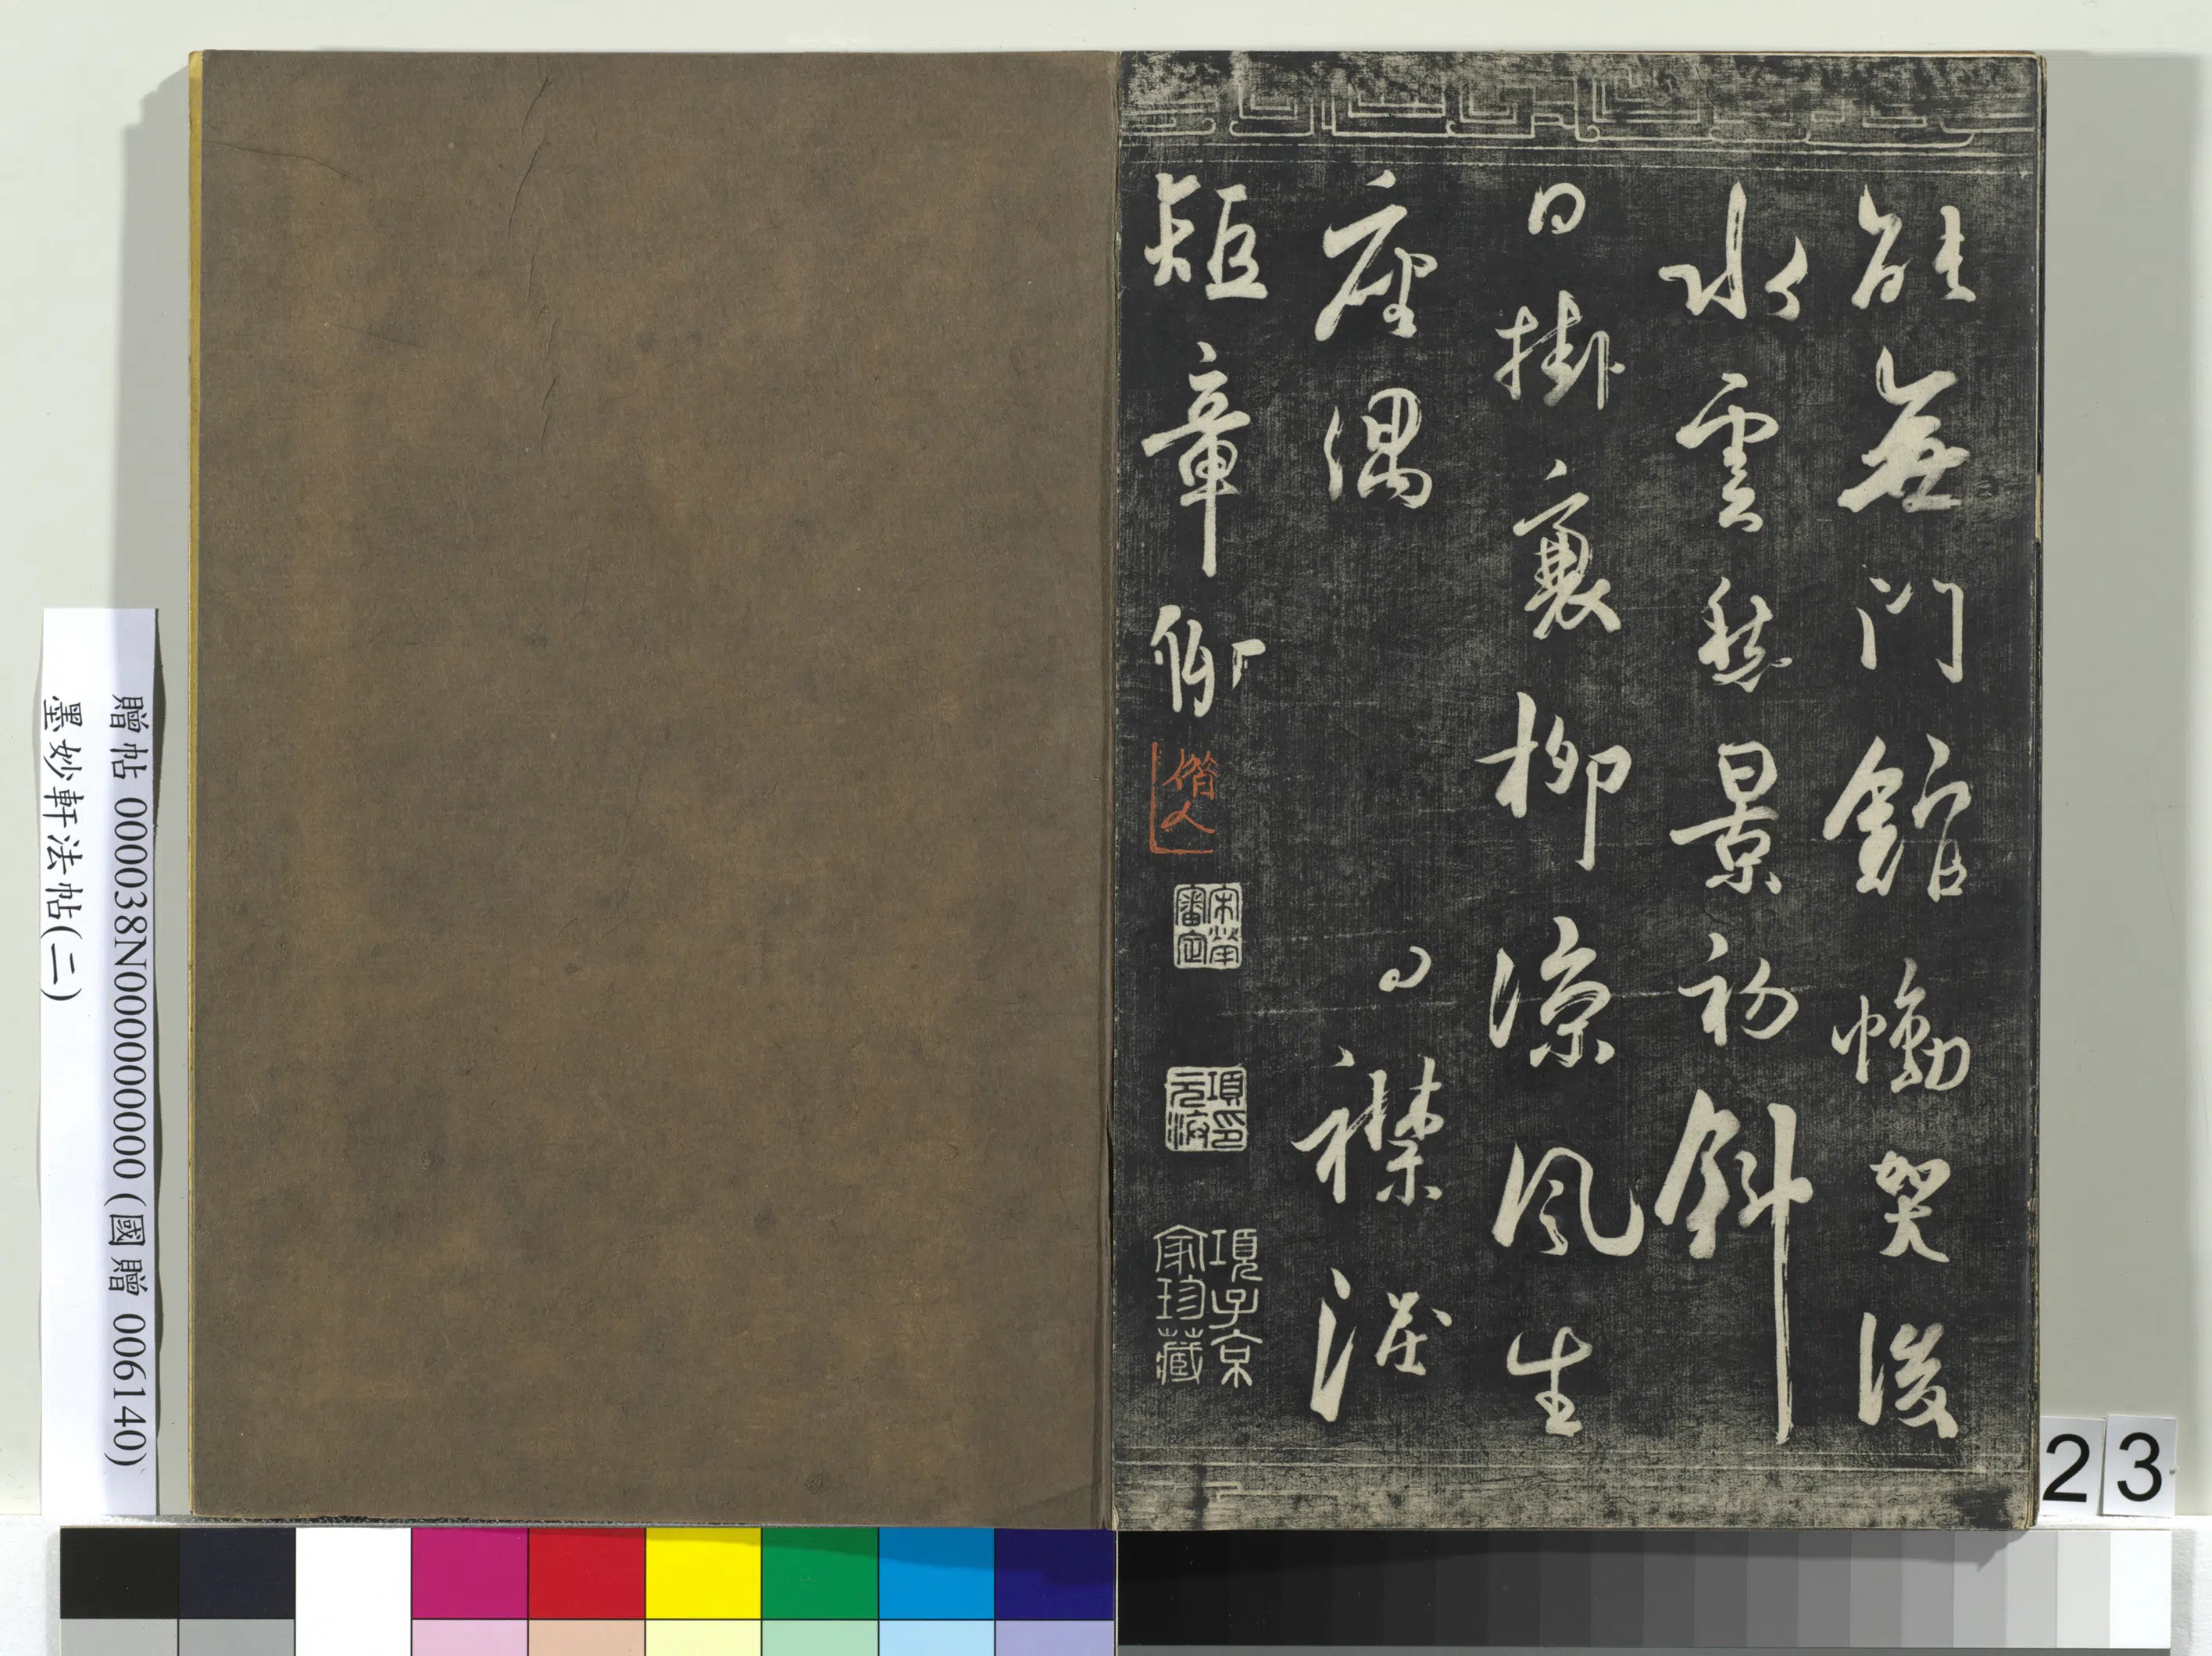 能無門館慟哭後
水雲愁景初斜
日掛衰柳涼風生
座偶
襟
短章
宋犖審定
項元汴印
項子京家珍藏
贈帖 000038N000000000 (國贈 006140)
墨妙軒法帖(二)
23